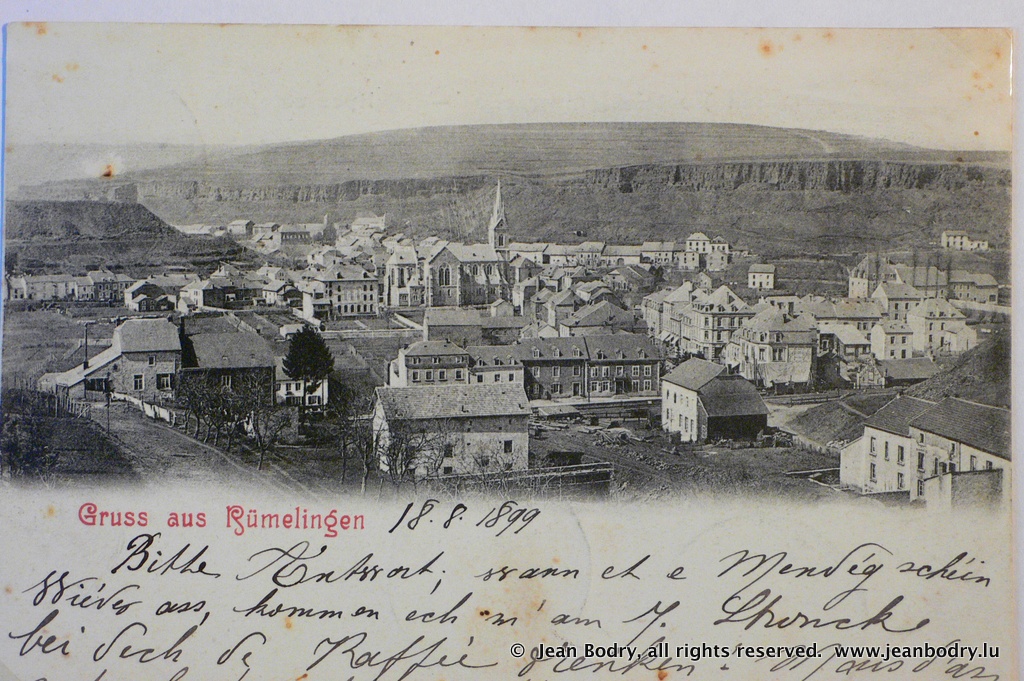 Gruss aus Rümelingen 18. 8. 1899
Bitte Antwort, wann et e Mendég schéin
Wiéder ass, kommen ech m'am J.
bei dech de Kaffée drénken
© Jean Bodry, all rights reserved. www.jeanbodry.lu